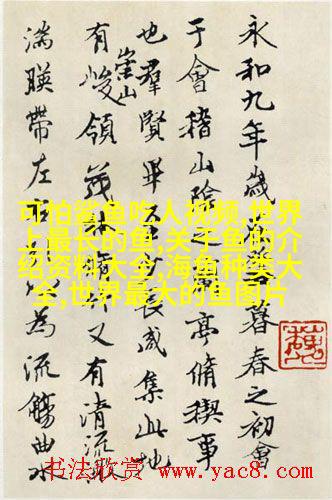 永和九年歲暮春之初會
于會稽山陰之蘭亭脩稧事
也羣賢畢至少長咸集此地
有崇山峻領茂林脩竹又有清流激
湍暎帶左右引以為流觴曲水
可怕鲨鱼吃人视频,世界
上最长的鱼,关于鱼的介
绍资料大全,海鱼种类大
全,世界最大的鱼图片
书法欣赏 www.yac8.com